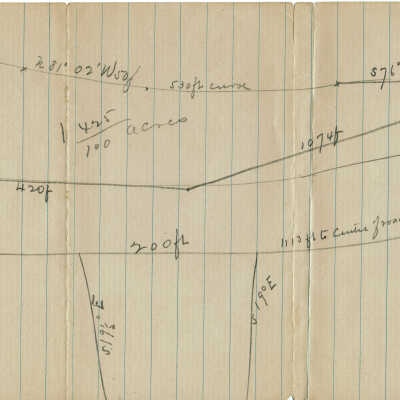 N 81° 02' W 50f
530ft curve
576
1 425/100 acres
1074f
420f
200ft
1113 ft to centre of road
S 19½° E
S 19° E